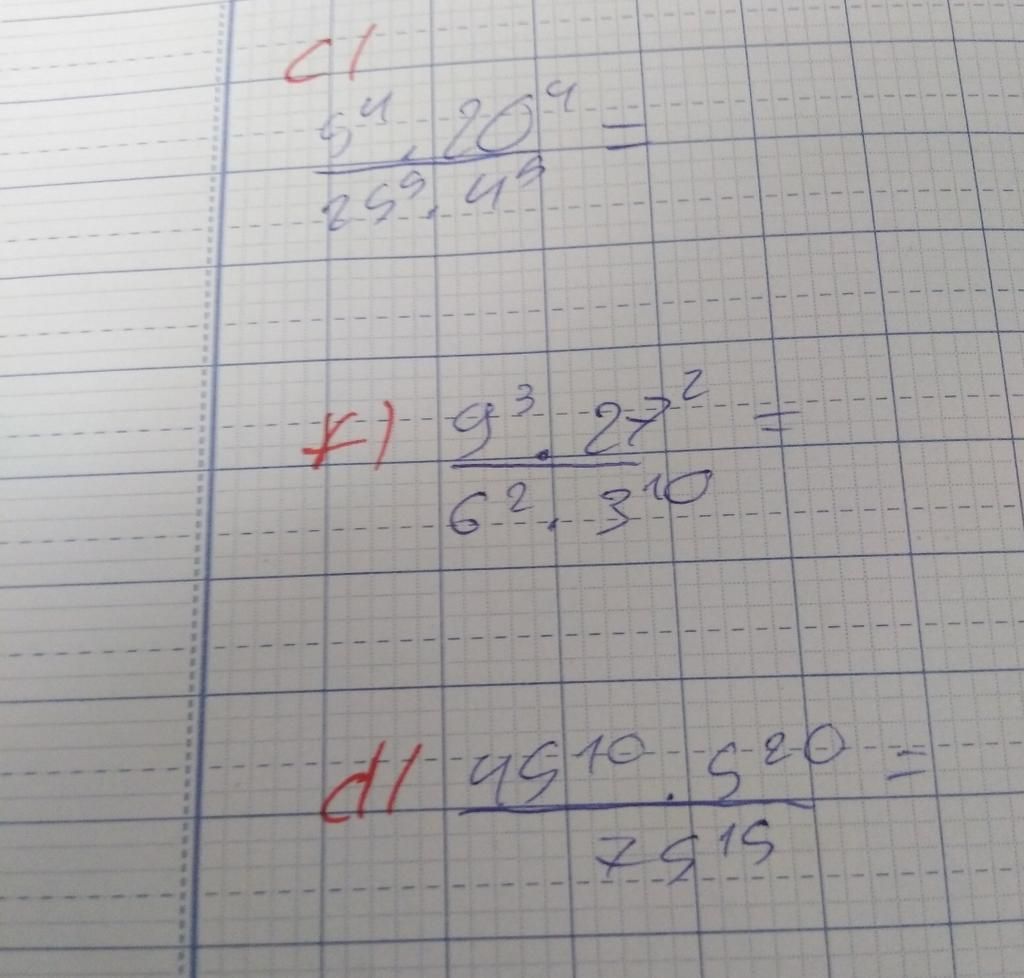 c)
5⁴ . 20⁴ =
25⁵ . 4⁵
f) 9³ . 27² =
6² . 3¹⁰
d) 45¹⁰ . 5²⁰ =
75¹⁵